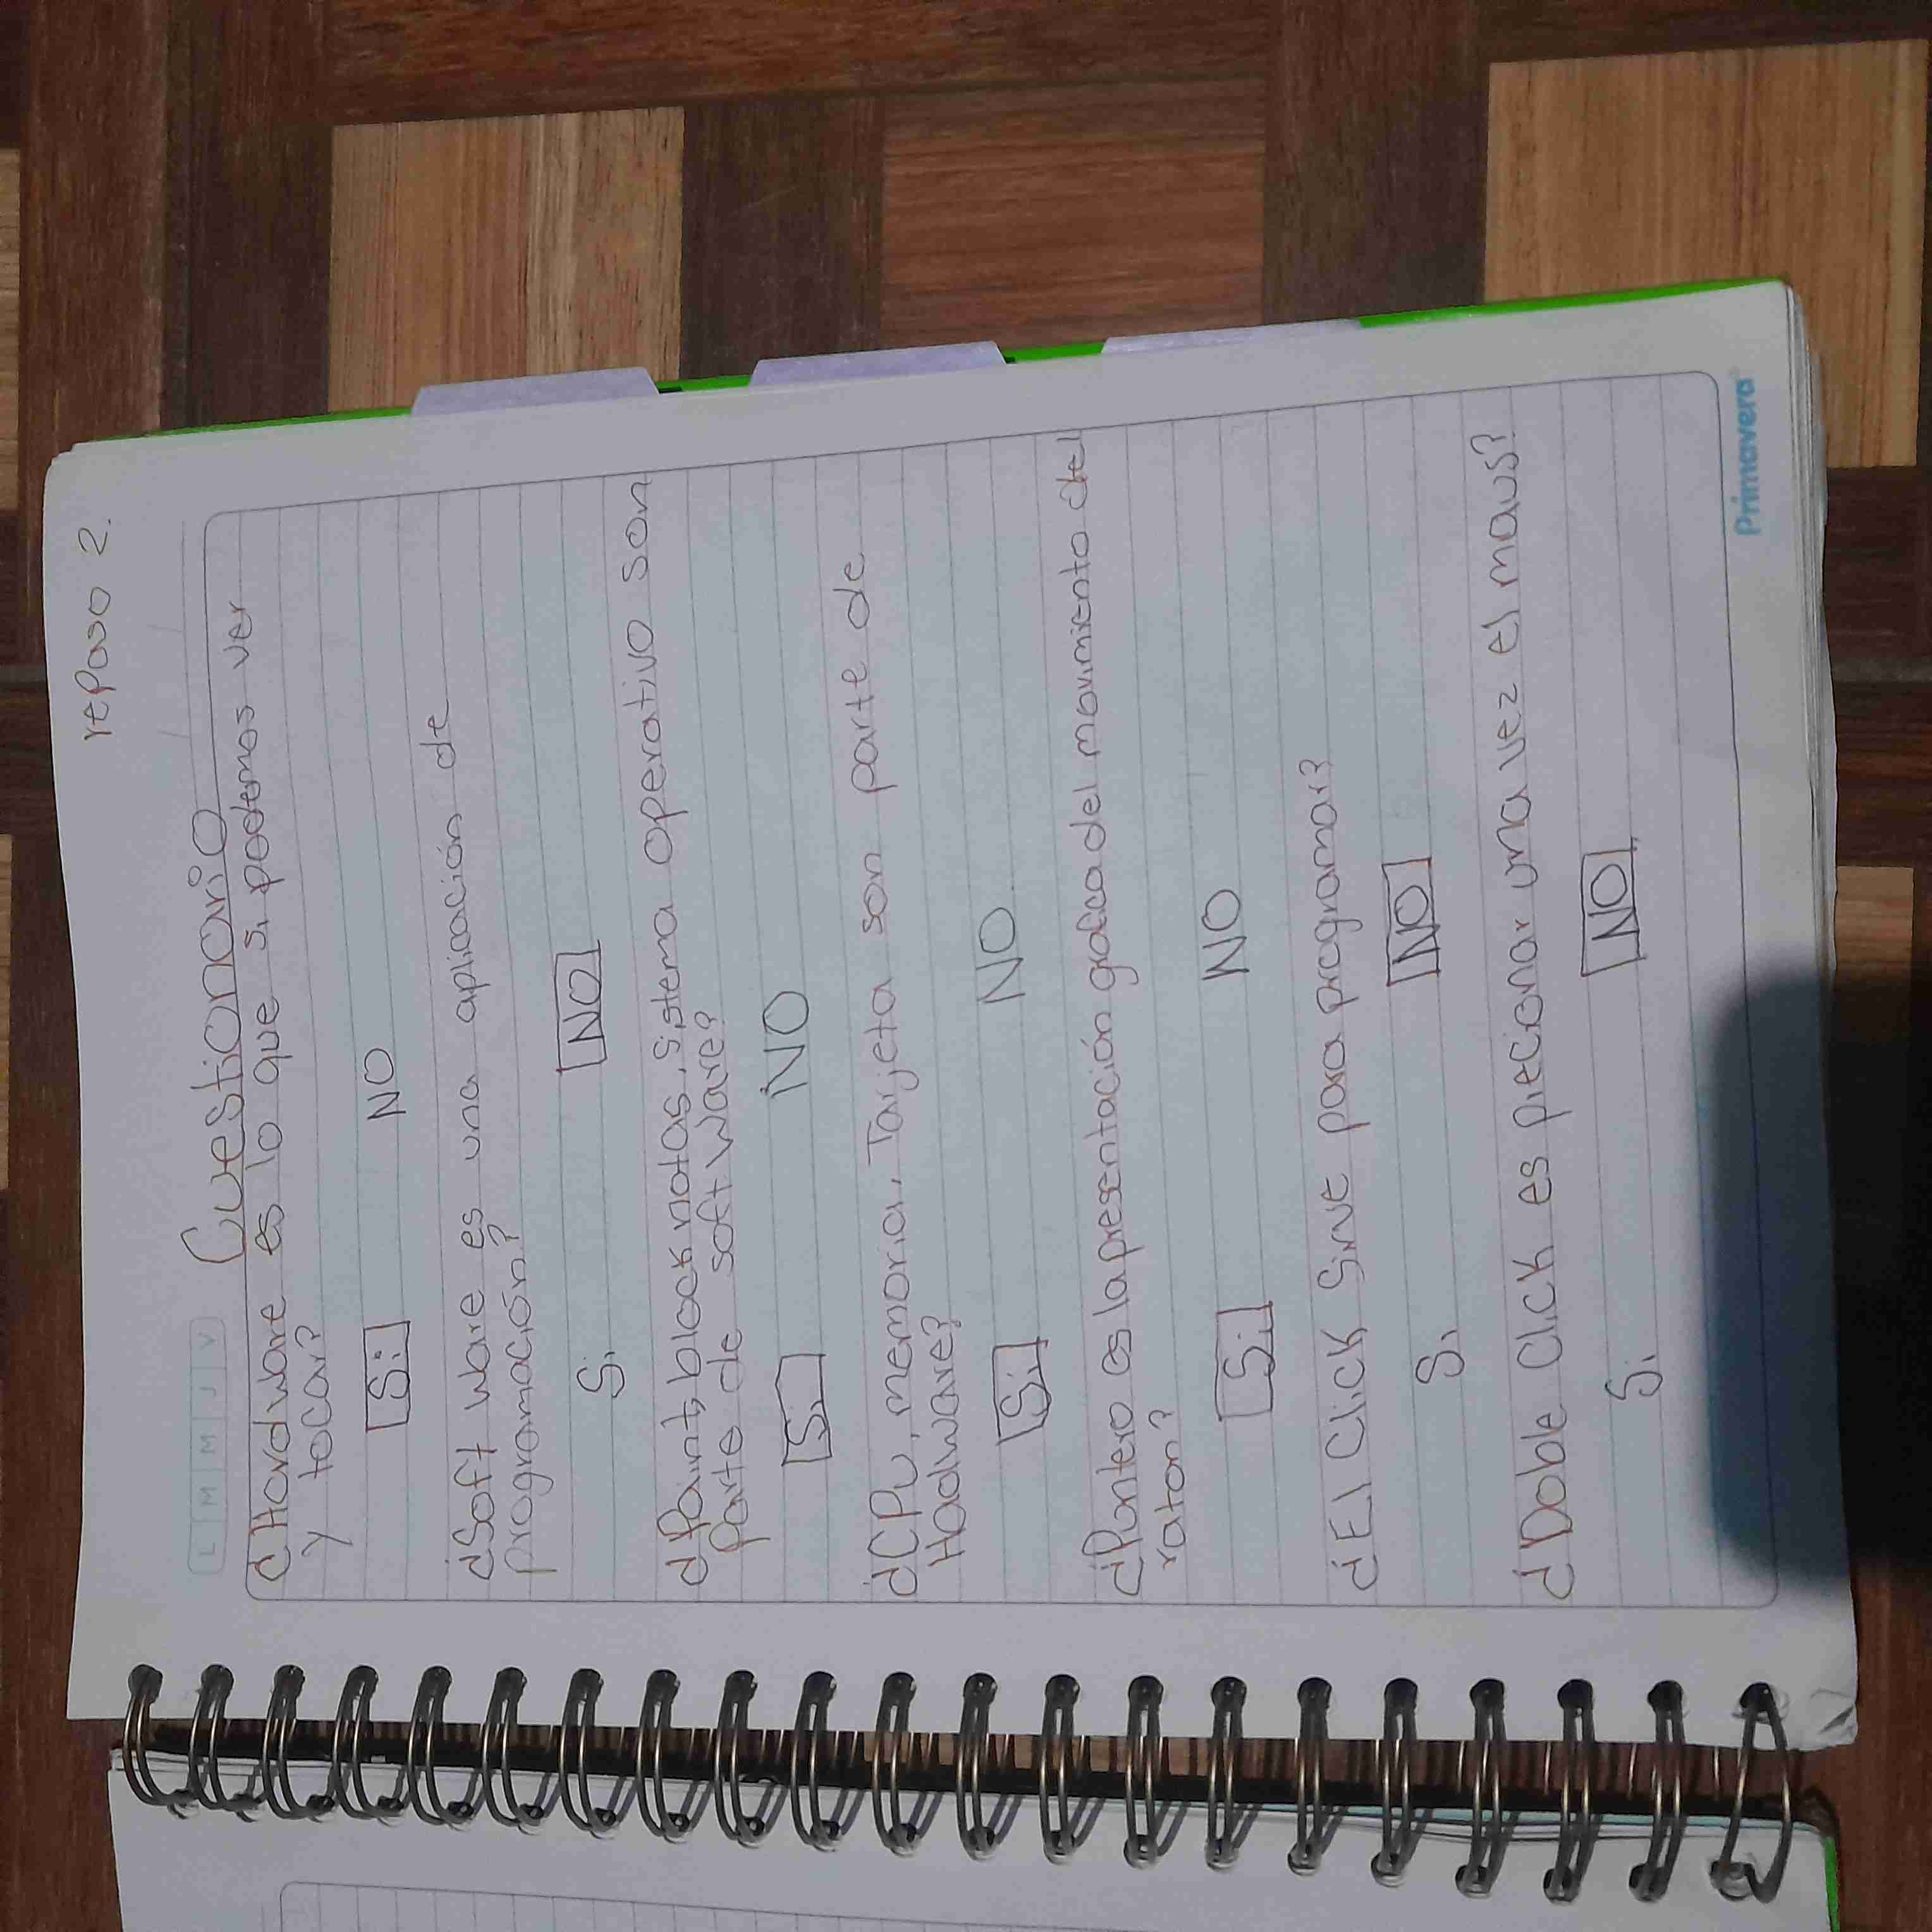 repaso 2.
L M M J V
Cuestionario
¿Hardware es lo que si podemos ver
y tocar?
Si NO
¿Soft ware es una aplicación de
programación?
Si NO
¿Paint, block notas, sistema operativo son
parte de soft ware?
Si NO
¿CPU, memoria, Tarjeta son parte de
Hadware?
Si NO
¿Puntero es la presentación grafica del movimiento del
raton?
Si NO
¿El Click Sirve para programar?
Si NO
¿Doble Click es precionar una vez el maus?
Si NO
Primavera